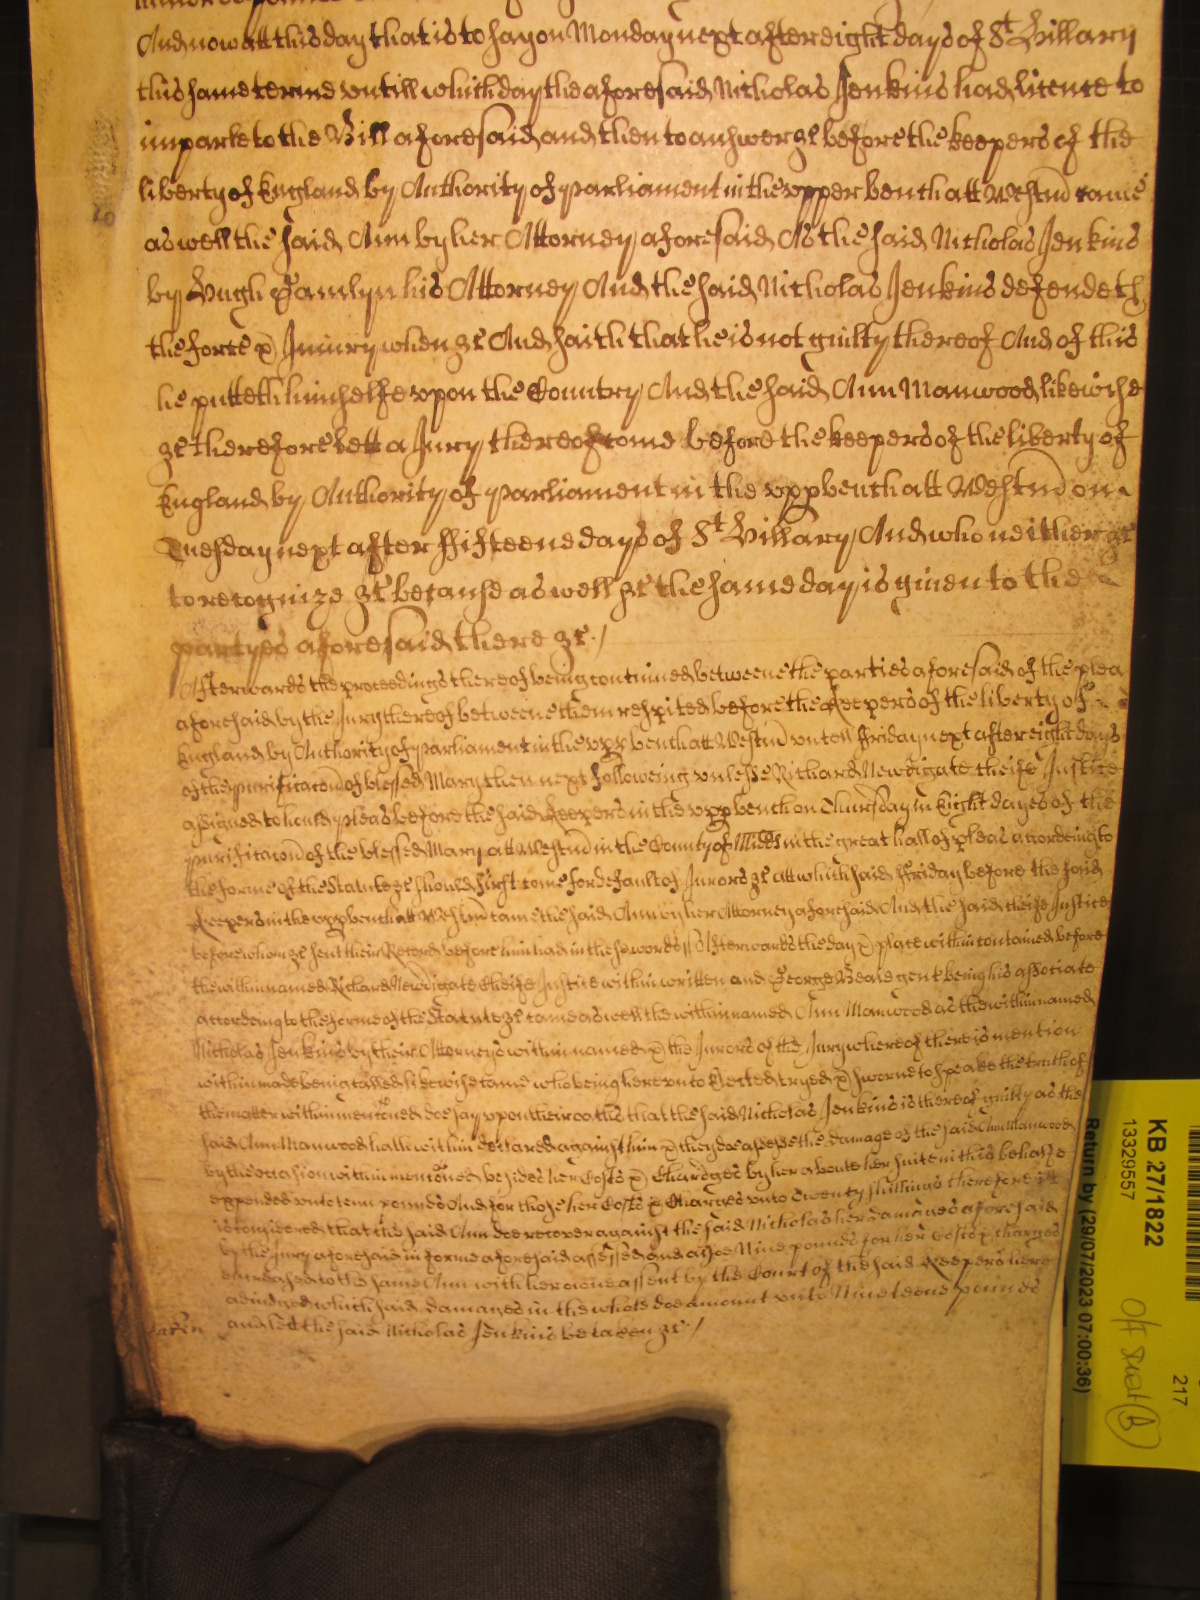 And now att this day that is to say on Monday next after eight days of St Hillary
this same terme vntill which day the aforesaid Nicholas Jenkins had licence to
imparle to the Bill aforesaid and then to answer &c before the keepers of the
liberty of England by Authority of Parliament in the vpper bench att Westm came
as well the said Ann by her Attorney aforesaid As the said Nicholas Jenkins
by Hugh Hamlyn his Attorney And the said Nicholas Jenkins defendeth
the force & Iniury when &c And saith that he is not guilty thereof And of this
he putteth himselfe vpon the Country And the said Ann Manwood likewise
&c therefore lett a Jury thereof come before the keepers of the liberty of
England by Authority of Parliament in the vpp bench att Westm on
Tuesday next after ffifteene days of St Hillary And who neither &c
to recognize &c because as well &c the same day is giuen to the
partyes aforesaid there &c /
Afterwards the proceedings thereof being continued betweene the parties aforesaid of the plea
aforesaid by the Jury thereof betweene them respited before the Keepers of the liberty of
England by Authority of Parliament in the vpp bench att Westm vntill ffriday next after eight days
of the purificacon of blessed Mary then next followeing vnlesse Richard Newdigate cheife Justice
assigned to hould pleas before the said Keepers in the vpp bench on Thursday in Eight dayes of the
purificacon of the blessed Mary att Westm in the County of Midds in the great hall of pleas accordeing to
the forme of the Statute &c should first come for default of Jurors &c att which said ffriday before the said
Keepers in the vpp bench att Westm came the said Ann by her Attorney aforesaid And the said cheife Justice
before whom &c sent their Record before him had in these words ss Afterwards the day & place within contained before
the within named Richard Newdigate Cheife Justice within written and George Beare gent being his associate
accordeing to the forme of the Statute &c came as well the within named Ann Manwood as the within named
Nicholas Jenkins by their Attorneys within named & the Jurors of the Jury whereof there is mention
within made being called likewise came who being herevnto Elected tryed & sworne to speake the truth of
the matter within menconed doe say vpon their oaths that the said Nicholas Jenkins is thereof guilty as the
said Ann Manwood hath within declared against him & they doe assesse the damage of the said Ann Manwood
by the occasion within menconed besides her Costs & Chardges by her aboute her suite in this behalfe
expended vnto tenn pounds And for those her Costs & Charges vnto Twenty shillings therefore itt
is considered that the said Ann doe recouer against the said Nicholas her damages aforesaid
by the Jury aforesaid in forme aforesaid assessed and alsoe Nine pounds for her Costs & charges
encreased to the same Ann with her owne assent by the Court of the said Keepers here
adiudged which said damages in the whole doe amount vnto Nineteene pounds
and lett the said Nicholas Jenkins be taken &c /
taken
KB 27/1822
13329557
Return by (29/07/2023 07:00:36)
217